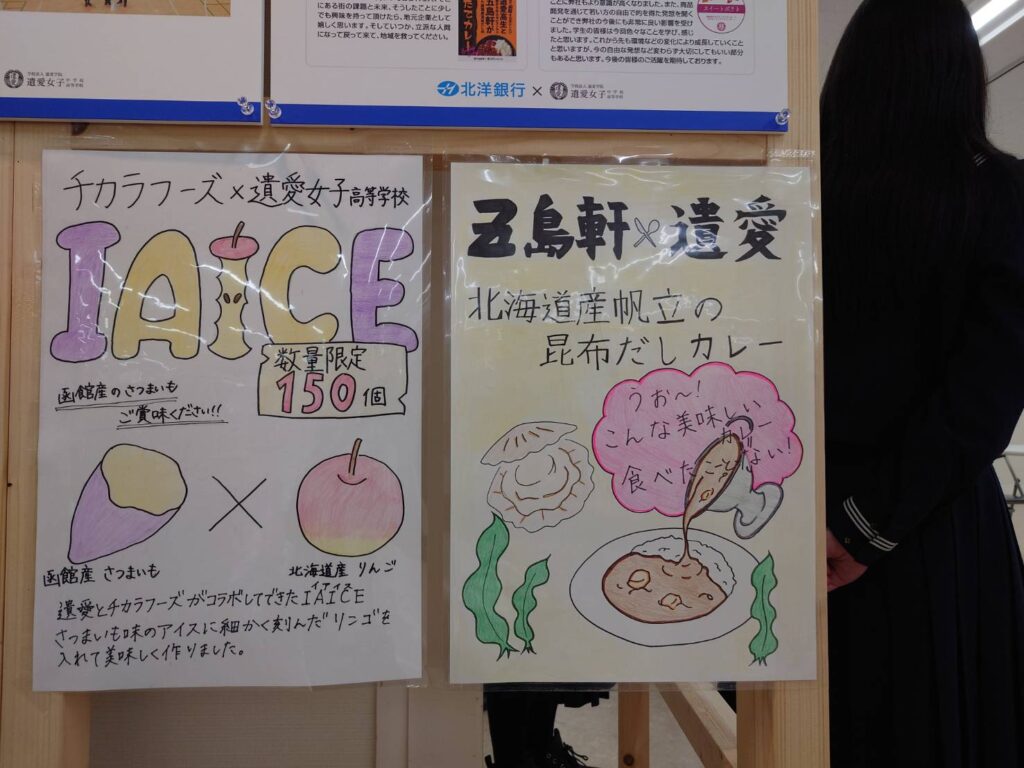 にある街の課題と未来、そうしたことに少し
でも興味を持って頂けたら、地元企業として
嬉しく思います。そしていつか、立派な人間
になって戻って来て、地域を救ってください。
遺愛女子 中学校 高等学校
ことに弊社もより意識が高くなりました。また、商品
開発を通じて若い方の自由で的を得た発想を聞く
ことができ弊社の今後にも非常に良い影響を受け
ました。学生の皆様は今回色々なことを学び、感じ
たと思います。これから先も環境などの変化により成長していくこと
と思いますが、今の自由な発想など変わらず大切にしてもいい部分
もあると思います。今後の皆様のご活躍を期待しております。
スイートポテト
北洋銀行 × 遺愛女子 中学校 高等学校
チカラフーズ×遺愛女子高等学校
IAICE
数量限定
150個
函館産のさつまいも
ご賞味ください!!
×
函館産 さつまいも
北海道産 りんご
遺愛とチカラフーズがコラボしてできたIAICE
アイアイス
さつまいも味のアイスに細かく刻んだリンゴを
入れて美味しく作りました。
五島軒×遺愛
北海道産帆立の
昆布だしカレー
うお〜!
こんな美味しい
カレー
食べたことない!